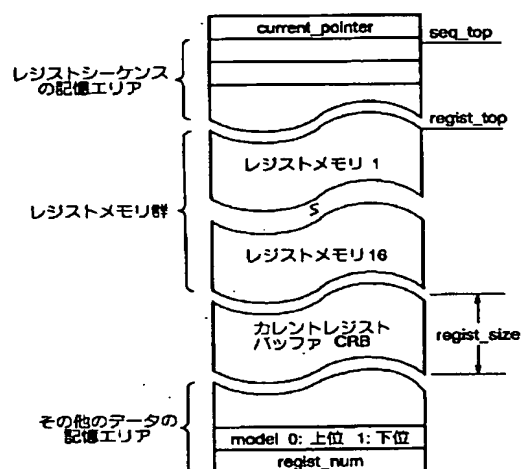 current_pointer
seq_top
レジストシーケンス
の記憶エリア
regist_top
レジストメモリ 1
レジストメモリ群
S
レジストメモリ 16
カレントレジスト
バッファ CRB
regist_size
その他のデータの
記憶エリア
model 0: 上位 1: 下位
regist_num